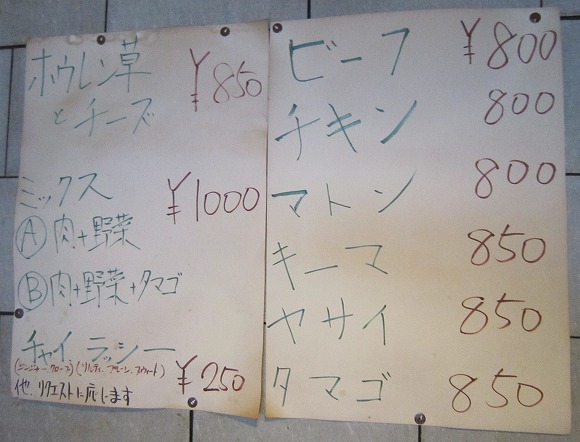 ホウレン草 ¥850
とチーズ
ミックス ¥1000
Ⓐ肉+野菜
Ⓑ肉+野菜+タマゴ
チャイ ラッシー
(ジンジャー、クローブ) (ソルティ、プレーン、スウィート) ¥250
他、リクエストに応じます
ビーフ ¥800
チキン 800
マトン 800
キーマ 850
ヤサイ 850
タマゴ 850